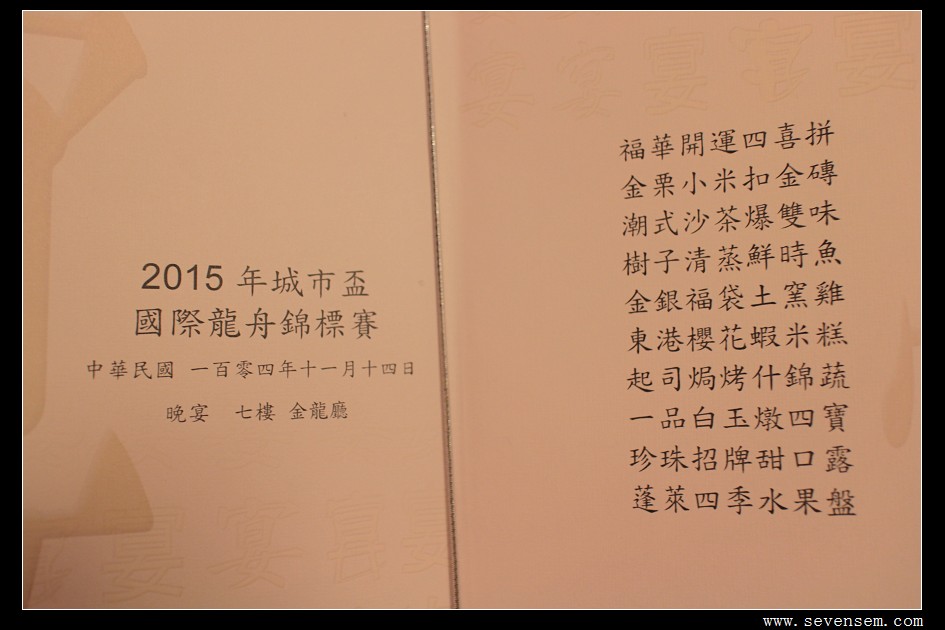 2015 年城市盃
國際龍舟錦標賽
中華民國 一百零四年十一月十四日
晚宴 七樓 金龍廳
福華開運四喜拼
金栗小米扣金磚
潮式沙茶爆雙味
樹子清蒸鮮時魚
金銀福袋土窯雞
東港櫻花蝦米糕
起司焗烤什錦蔬
一品白玉燉四寶
珍珠招牌甜口露
蓬萊四季水果盤
www.sevensem.com